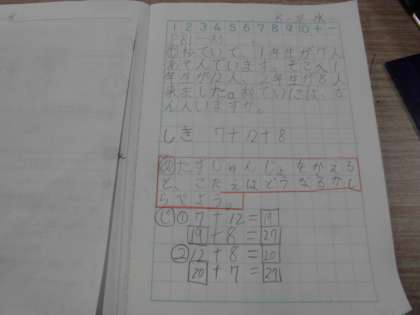 1 2 3 4 5 6 7 8 9 10 + -
こうていで、1年生が7人
あそんでいます。そこへ1
年生が12人、2年生が8人
来ました。こうていには、な
ん人いますか。
しき 7+12+8
め たすじゅんじょをかえる
と、こたえはどうなるかし
らべよう。
じ ① 7+12=19
19+8=27
② 12+8=20
20+7=27